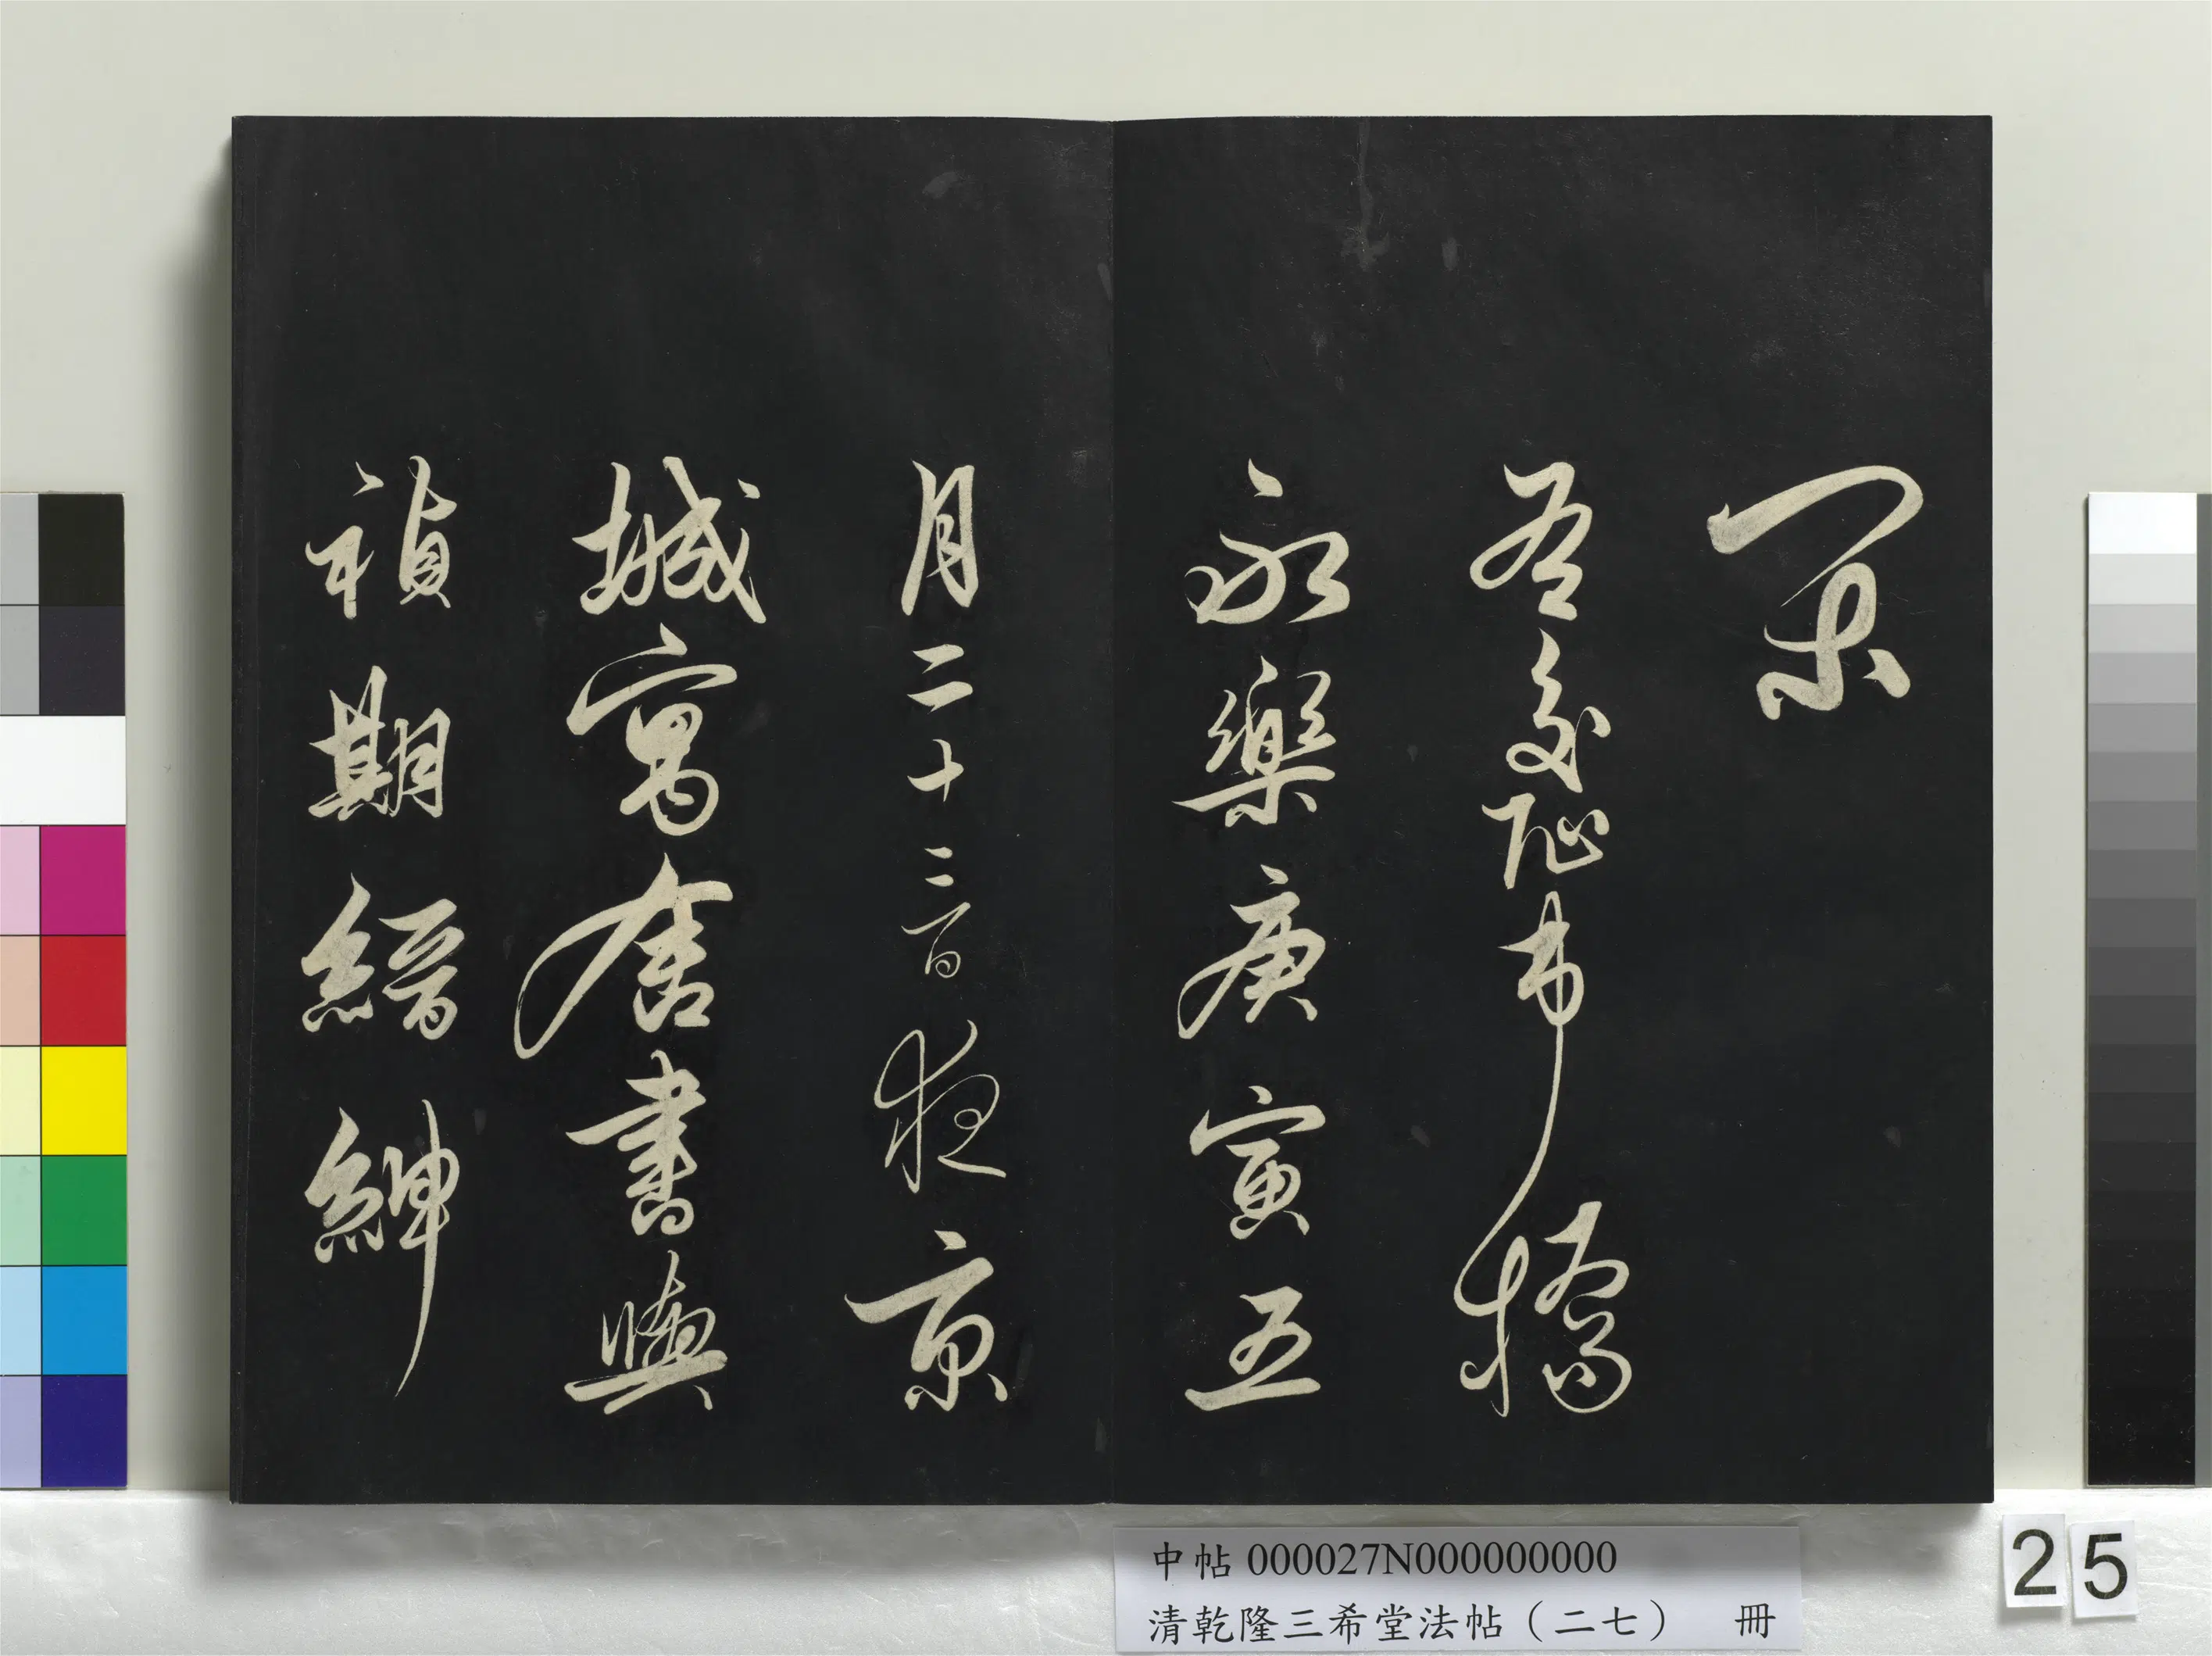 閑
右交阯市橋
永樂庚寅五
月二十三日夜京
城寓舍書與
禎期縉紳
中帖 000027N000000000
清乾隆三希堂法帖（二七） 冊
25